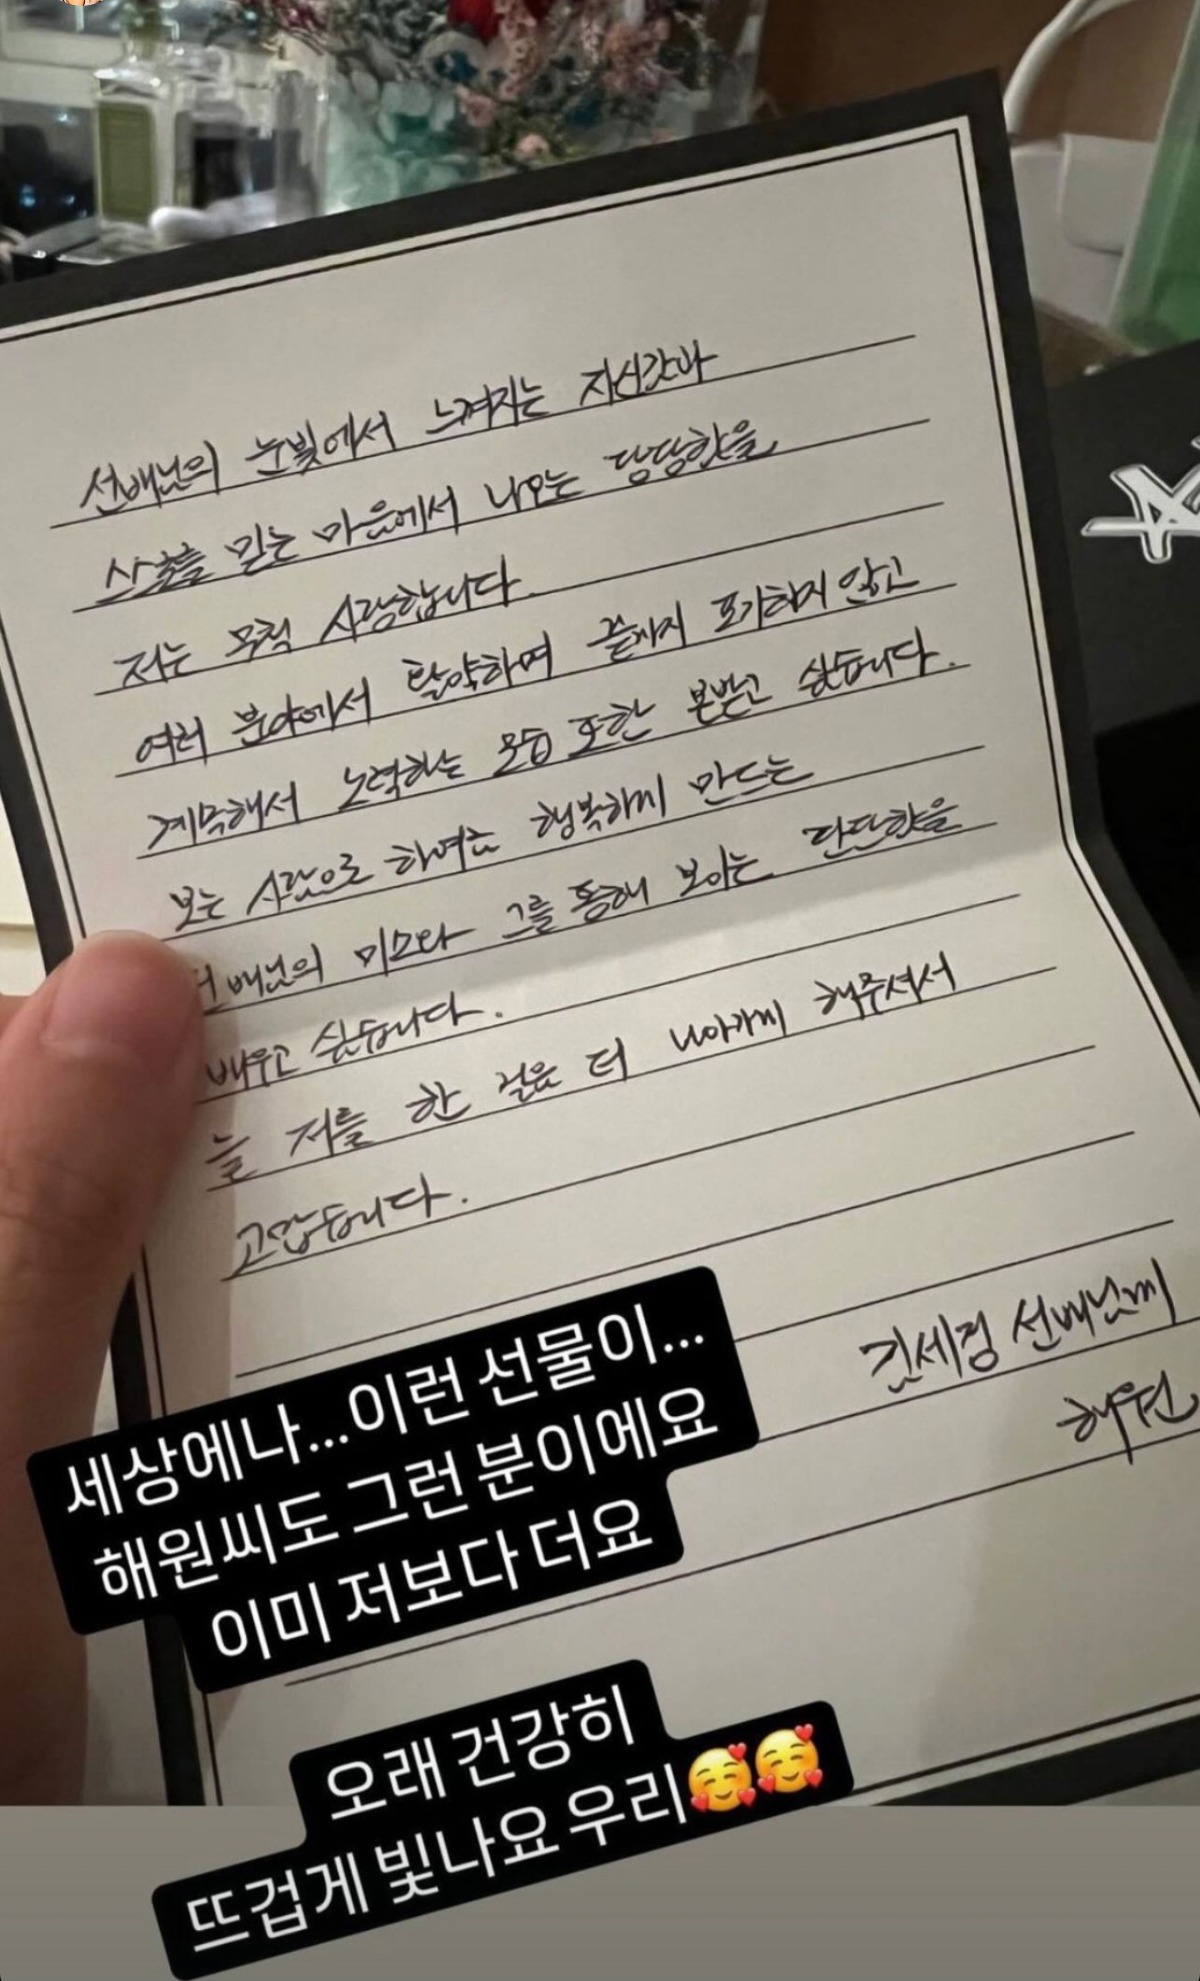 선배님의 눈빛에서 느껴지는 자신감과
스스로를 믿는 마음에서 나오는 당당함을
저는 무척 사랑합니다.
여러 분야에서 활약하며 끝까지 포기하지 않고
계속해서 노력하는 모습 또한 본받고 싶습니다.
보는 사람으로 하여금 행복하게 만드는
선배님의 미소와 그를 통해 보이는 단단함을
배우고 싶습니다.
늘 저를 한 걸음 더 나아가게 해주셔서
고맙습니다.
김세정 선배님께
해원
세상에나...이런 선물이...
해원씨도 그런 분이에요
이미 저보다 더요
오래 건강히
뜨겁게 빛나요 우리🥰🥰